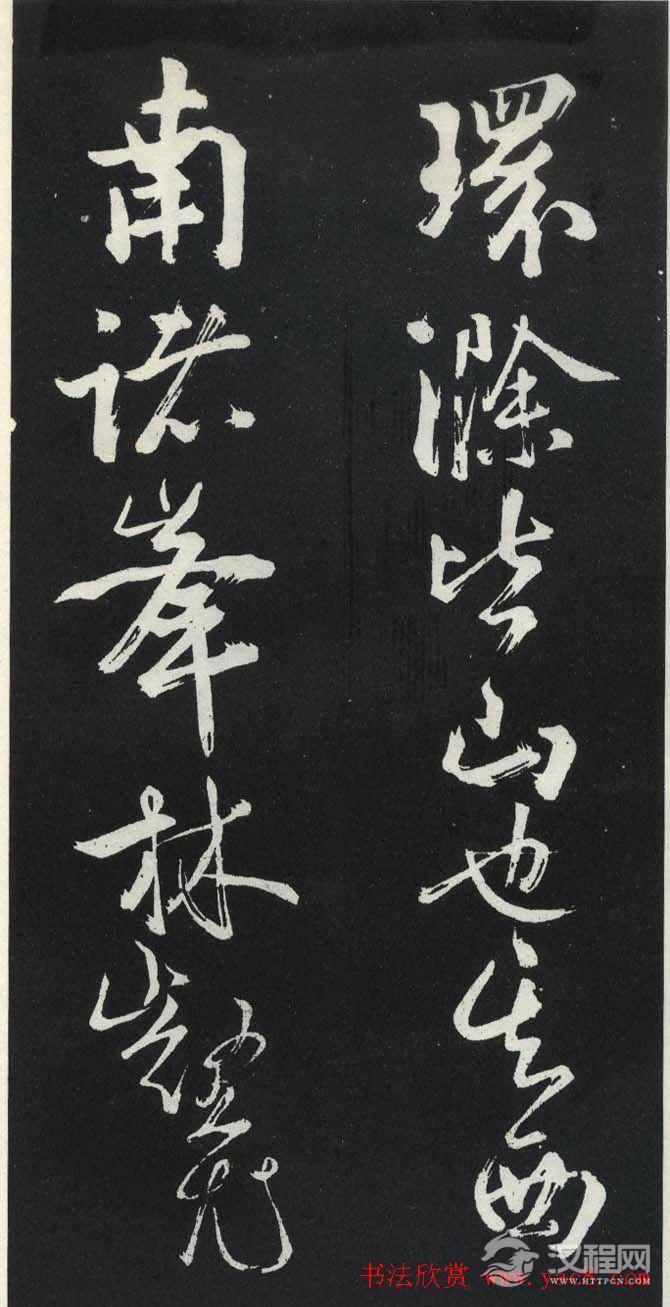 環滁皆山也其西
南諸峯林壑尤
汉程网
WWW.HTTPCN.COM
书法欣赏